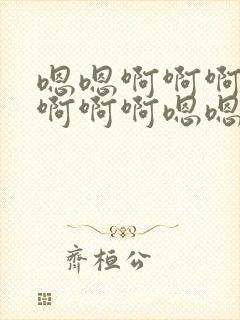 嗯嗯啊啊啊
啊啊啊嗯嗯
齊桓公